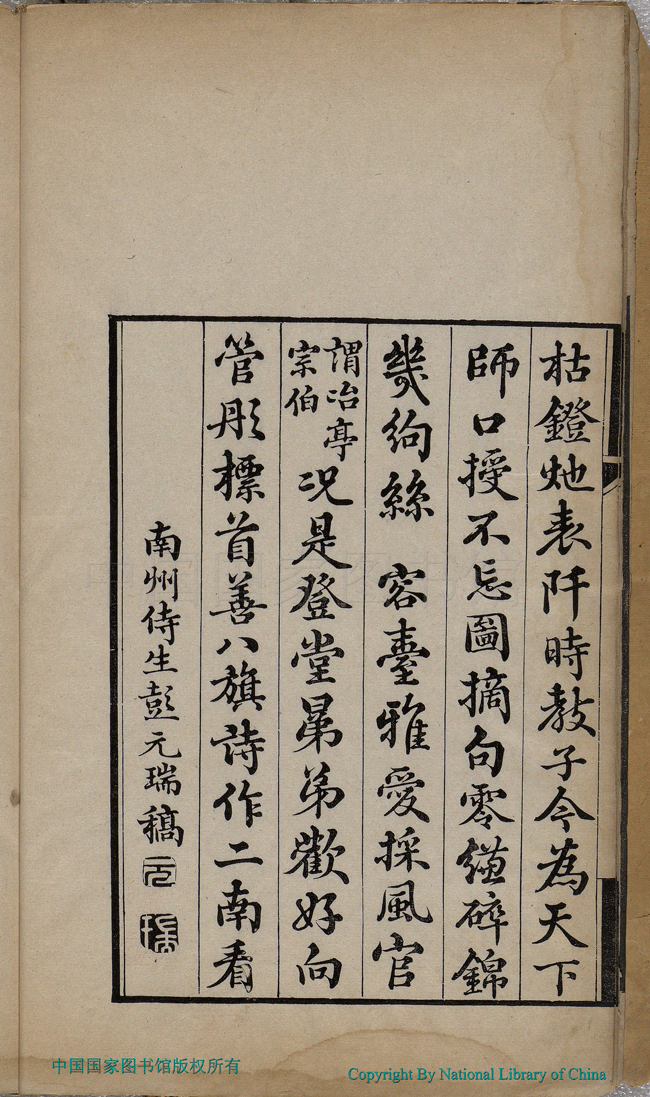 枯鐙灺表阡時教子今為天下
師口授不忘圖摘句零縑碎錦
幾絇絲　容臺雅愛採風官
謂冶亭
宗伯
況是登堂晜弟歡好向
管彤標首善八旗詩作二南看
南州侍生彭元瑞稿
元
瑞
中国国家图书馆版权所有
Copyright By National Library of China